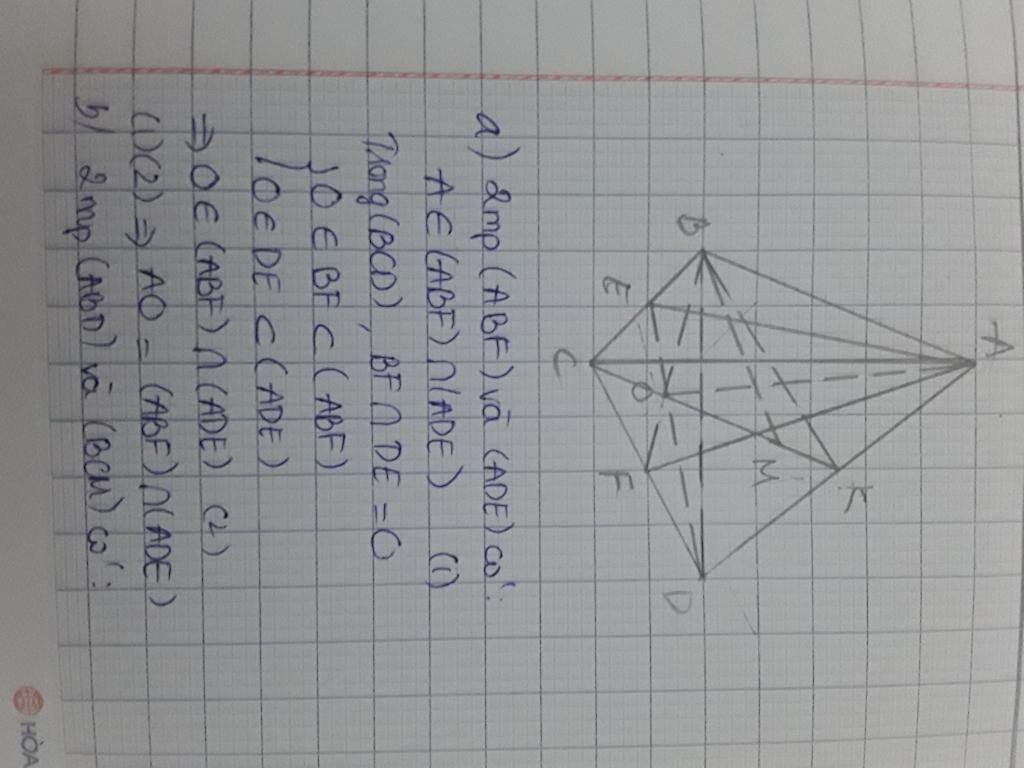 A
B
E
C
O
F
M
K
D
a) 2mp (ABF) và (ADE) có:
A ∈ (ABF) ∩ (ADE) (1)
Trong (BCD), BF ∩ DE = O
{ O ∈ BF ⊂ (ABF)
{ O ∈ DE ⊂ (ADE)
⇒ O ∈ (ABF) ∩ (ADE) (2)
(1)(2) ⇒ AO = (ABF) ∩ (ADE)
b) 2mp (ABD) và (BCM) có:
HÒA